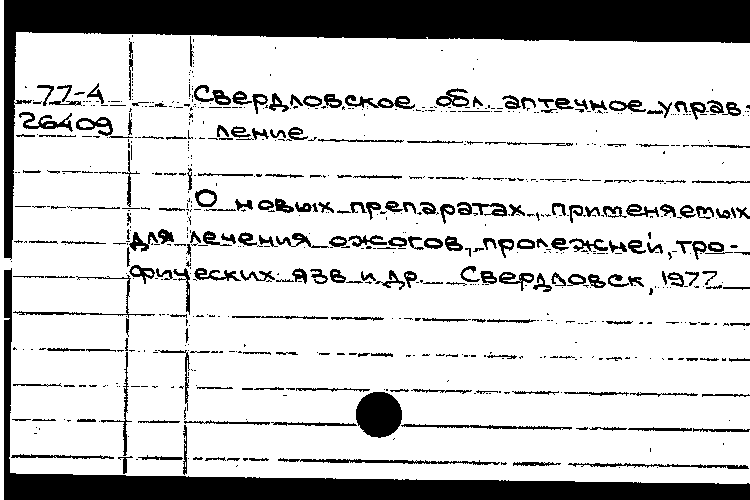 77-4 Свердловское обл. аптечное управ-
26409 ление.
О новых препаратах, применяемых
для лечения ожогов, пролежней, тро-
фических язв и др. Свердловск, 1977.